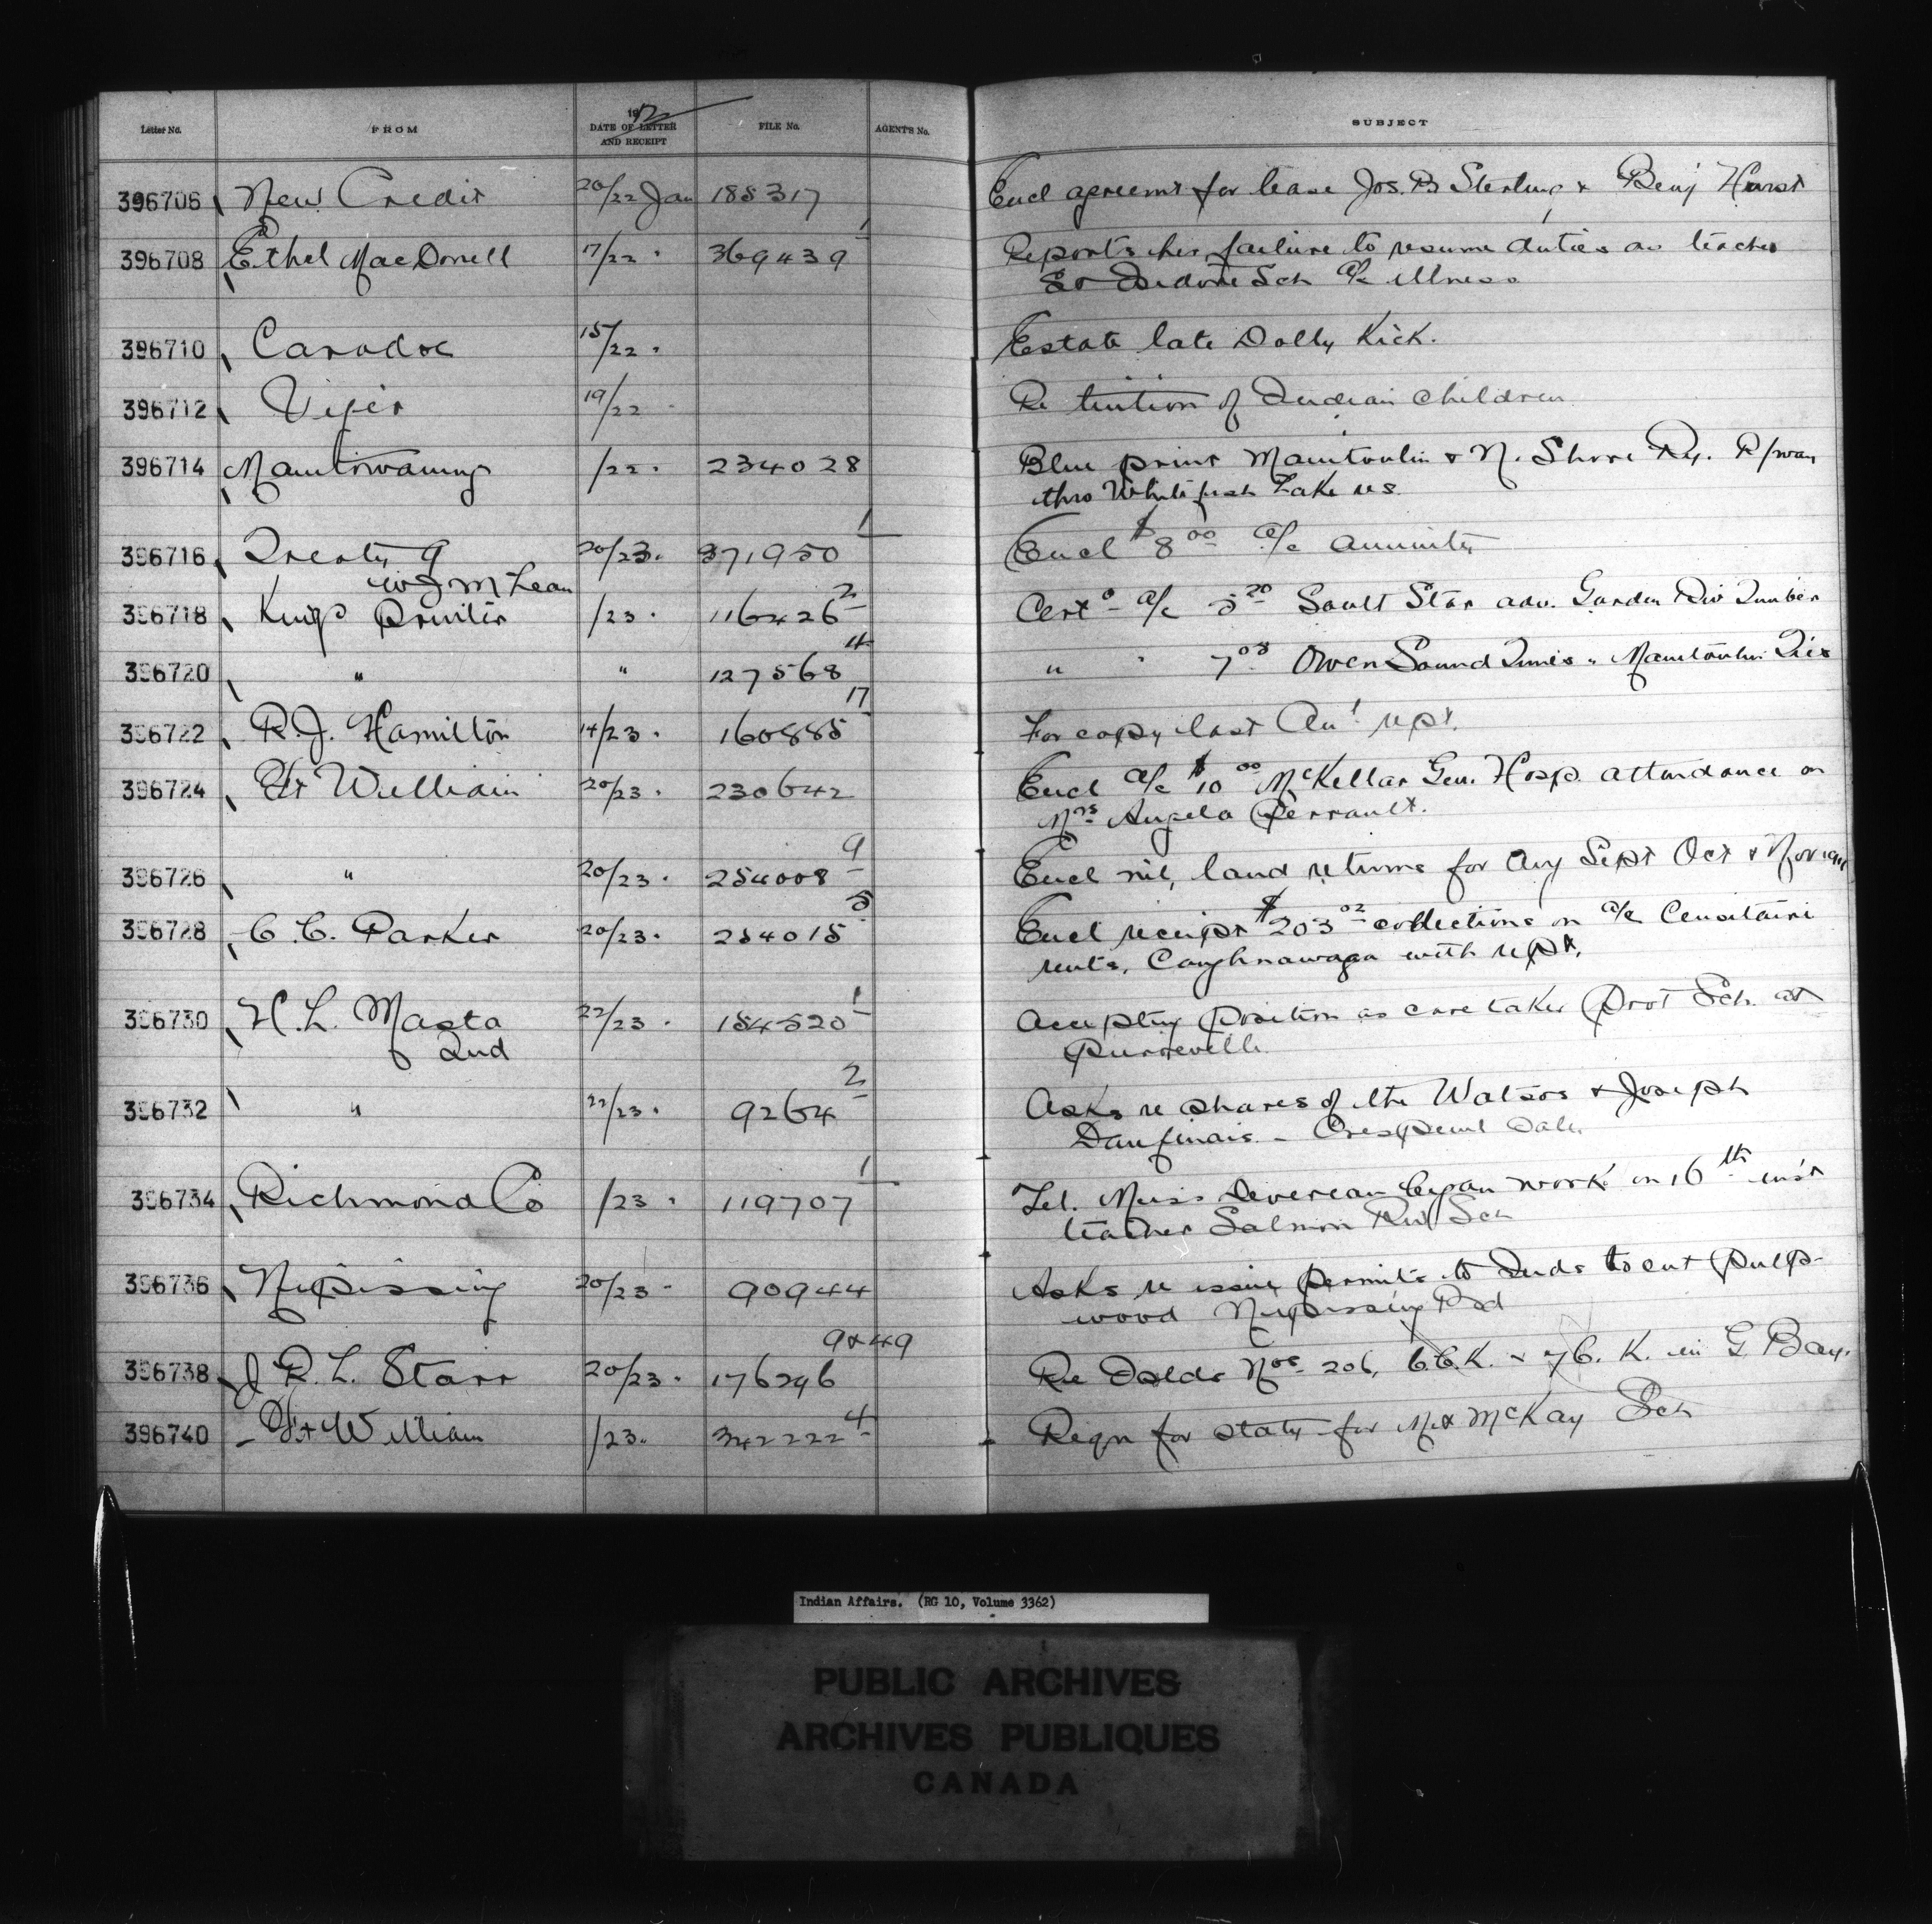 Letter No. FROM 1912 DATE OF LETTER AND RECEIPT FILE No. AGENTS No. SUBJECT
396706 New Credit 20/22 Jan 185317 Encl agreemt for lease Jos. B Sterling & Benj Hurst
396708 Ethel MacDonell 17/22 " 369439 1 Reports her failure to resume duties as teacher
St Isidore Sch a/c illness
396710 Caradoc 15/22 " Estate late Dolly Kick.
396712 Viger 19/22 " Re tuition of Indian Children
396714 Manitowaning /22 " 234028 Blue print Manitoulin & N. Shore Ry. R/way
thro Whitefish Lake res.
396716 Treaty 9 20/23 " 371950 1 Encl $8 00 a/c annuity
W J McLean
396718 Kings Printer /23 " 116426 2 Cert o a/c 5 20 Sault Star adv. Garden Riv Timber
396720 " " 127568 4 " " 7 08 Owen Sound Times " Manitoulin
396722 R. J. Hamilton 14/23 " 160885 17 For copy last An'l rept.
396724 Ft William 20/23 " 230642 Encl a/c $10 00 McKellar Gen. Hosp. attendance on
Mrs Angela Perrault.
396726 " 20/23 " 254008 9 Encl nil, land returns for Aug Sept Oct & Nov 1911
396728 C. C. Parker 20/23 " 254015 5 Encl receipt $203 02 collections on a/c Censitaire
rents, Caughnawaga with rept.
396730 H. L. Masta 22/23 " 154520 1 Accepting position as care taker Prot Sch. at
Ind Pierreville
396732 " 22/23 " 9264 2 Asks re shares of the Watsos & Joseph
396734 Richmond Co /23 " 119707 1 Tel. Miss Devereau began work on 16th inst
teacher Salmon Riv Sch
396736 Nipissing 20/23 " 90944 Asks re issuing permits to Inds to cut pulp-
wood Nipissing Rd
396738 J R. L. Starr 20/23 " 176246 9&49 Re Islds Nos 206, 6C.K. & 7C.K. in G. Bay.
396740 Ft William /23 " 342222 4 Reqn for staty for Mt McKay Sch
Indian Affairs. (RG 10, Volume 3362)
PUBLIC ARCHIVES
ARCHIVES PUBLIQUES
CANADA